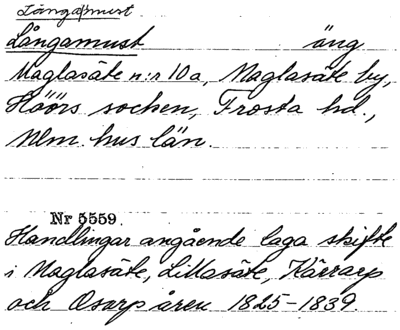 Långamust
Långamust äng
Maglasäte n:r 10a, Maglasäte by,
Höörs socken, Frosta hd.,
Mlm. hus län.
Nr 5559.
Handlingar angående laga skifte
i Maglasäte, Lillasäte, Kärrarp
och Osarp åren 1825-1839.